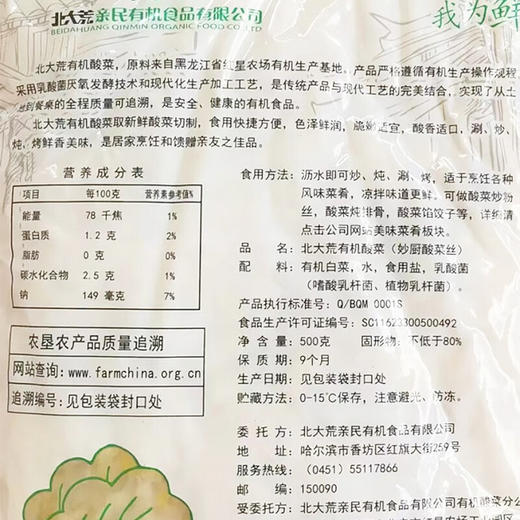 北大荒亲民有机食品有限公司
BEIDAHUANG QINMIN ORGANIC FOOD CO.LTD
我为鲜
北大荒有机酸菜，原料来自黑龙江省红星农场有机生产基地。产品严格遵循有机生产操作规程
采用乳酸菌厌氧发酵技术和现代化生产加工工艺，是传统产品与现代工艺的完美结合，实现了从土
地到餐桌的全程质量可追溯，是安全、健康的有机食品。
北大荒有机酸菜取新鲜酸菜切制，食用快捷方便，色泽鲜润，脆嫩适宜，酸香适口，涮、炒、
炖、烤鲜香美味，是居家烹饪和馈赠亲友之佳品。
营养成分表
项目 每100克 营养素参考值%
能量 78 千焦 1%
蛋白质 1.2 克 2%
脂肪 0 克 0%
碳水化合物 2.5 克 1%
钠 149 毫克 7%
农垦农产品质量追溯
网站查询:www.farmchina.org.cn
追溯编号:见包装袋封口处
食用方法：沥水即可炒、炖、涮、烤，适于烹饪各种
风味菜肴，凉拌味道更鲜。可做酸菜炒粉
丝，酸菜炖排骨，酸菜馅饺子等，详细请
点击公司网站美味菜肴板块。
品 名：北大荒有机酸菜（妙厨酸菜丝）
配 料：有机白菜，水，食用盐，乳酸菌
（嗜酸乳杆菌、植物乳杆菌）。
产品执行标准号：Q/BQM 0001S
食品生产许可证编号：SC11623300500492
净 含 量：500克 固形物：不低于80%
保 质 期：9个月
生产日期：见包装袋封口处
贮藏方法：0-15℃保存，注意避光、防冻。
委 托 方：北大荒亲民有机食品有限公司
地 址：哈尔滨市香坊区红旗大街259号
服务热线：（0451）55117866
邮 编：150090
受委托方：北大荒亲民有机食品有限公司有机酸菜分公